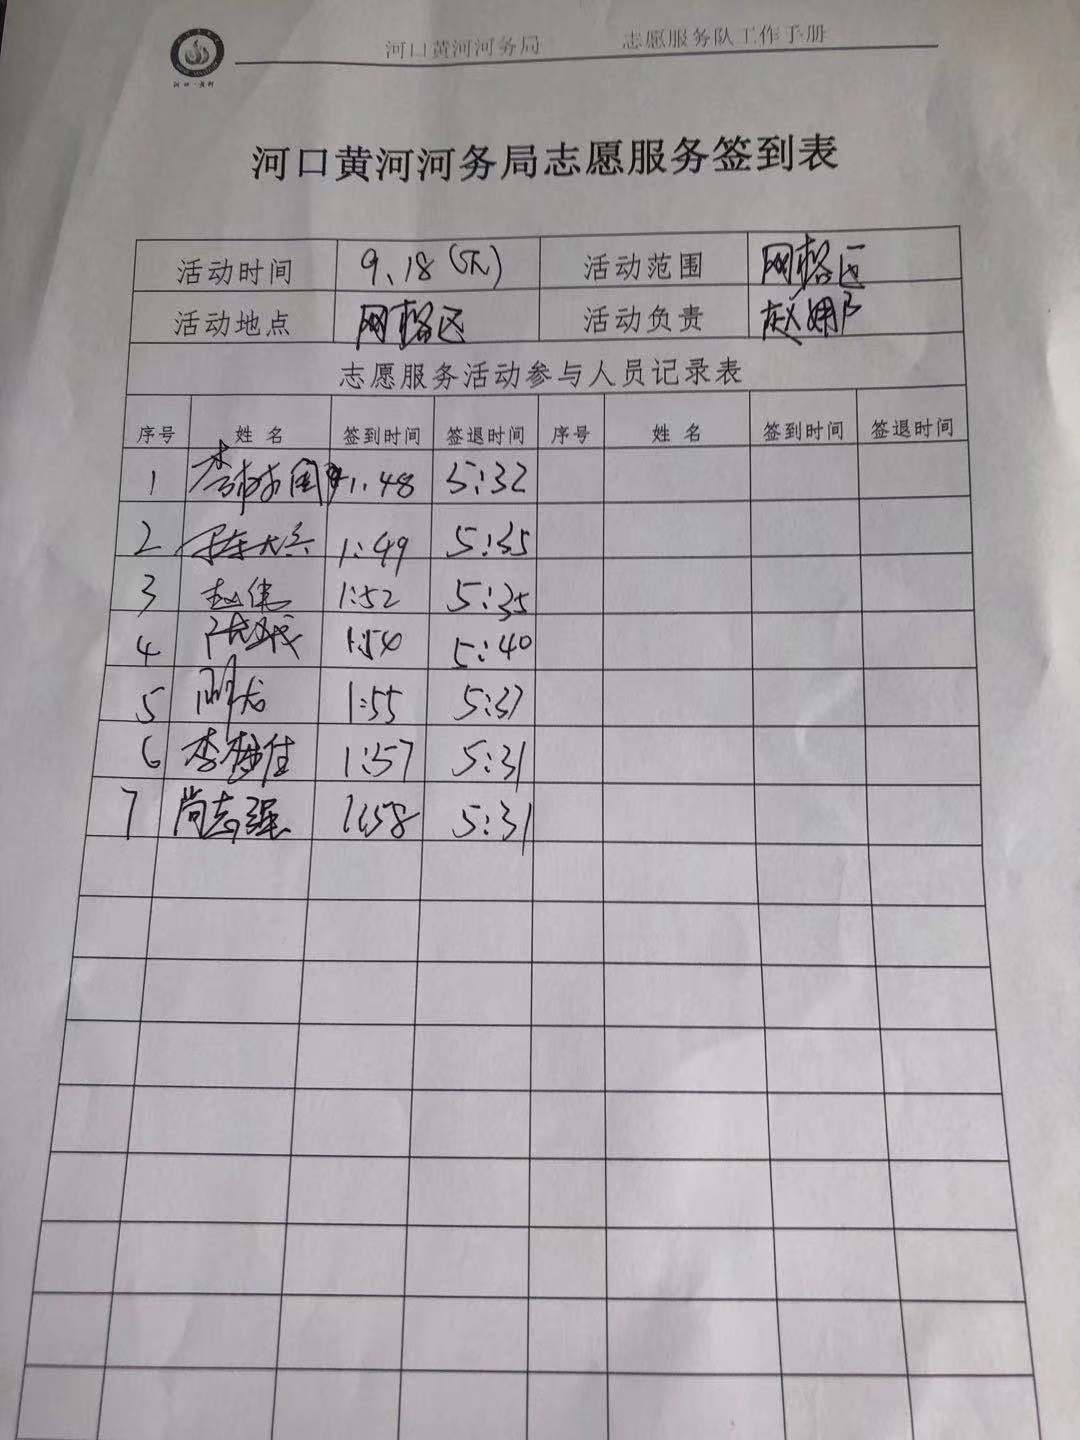 河口黄河河务局 志愿服务队工作手册
河口·黄河
河口黄河河务局志愿服务签到表
活动时间 9.18(下) 活动范围 网格区
活动地点 网格区 活动负责 赵娜
志愿服务活动参与人员记录表
序号 姓名 签到时间 签退时间 序号 姓名 签到时间 签退时间
1 李 国 1:48 5:32
2 1:49 5:35
3 赵伟 1:52 5:35
4 1:54 5:40
5 1:55 5:37
6 李 佳 1:57 5:31
7 尚志强 1:58 5:31